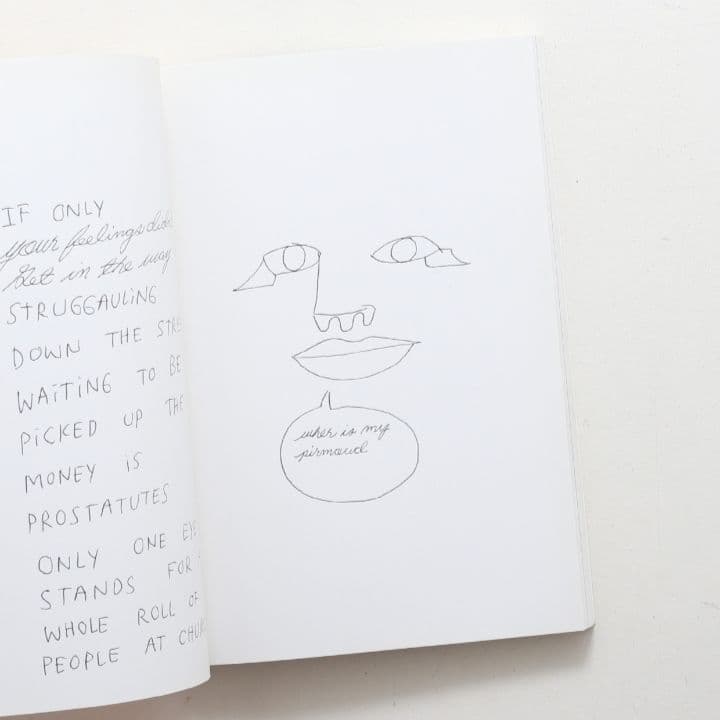 IF ONLY
your feelings didn
get in the way
STRUGGAULING
DOWN THE STRE
WAITING TO BE
PICKED UP THE
MONEY IS
PROSTATUTES
ONLY ONE EYE
STANDS FOR
WHOLE ROLL OF
PEOPLE AT CHU
wher is my
pirmaud